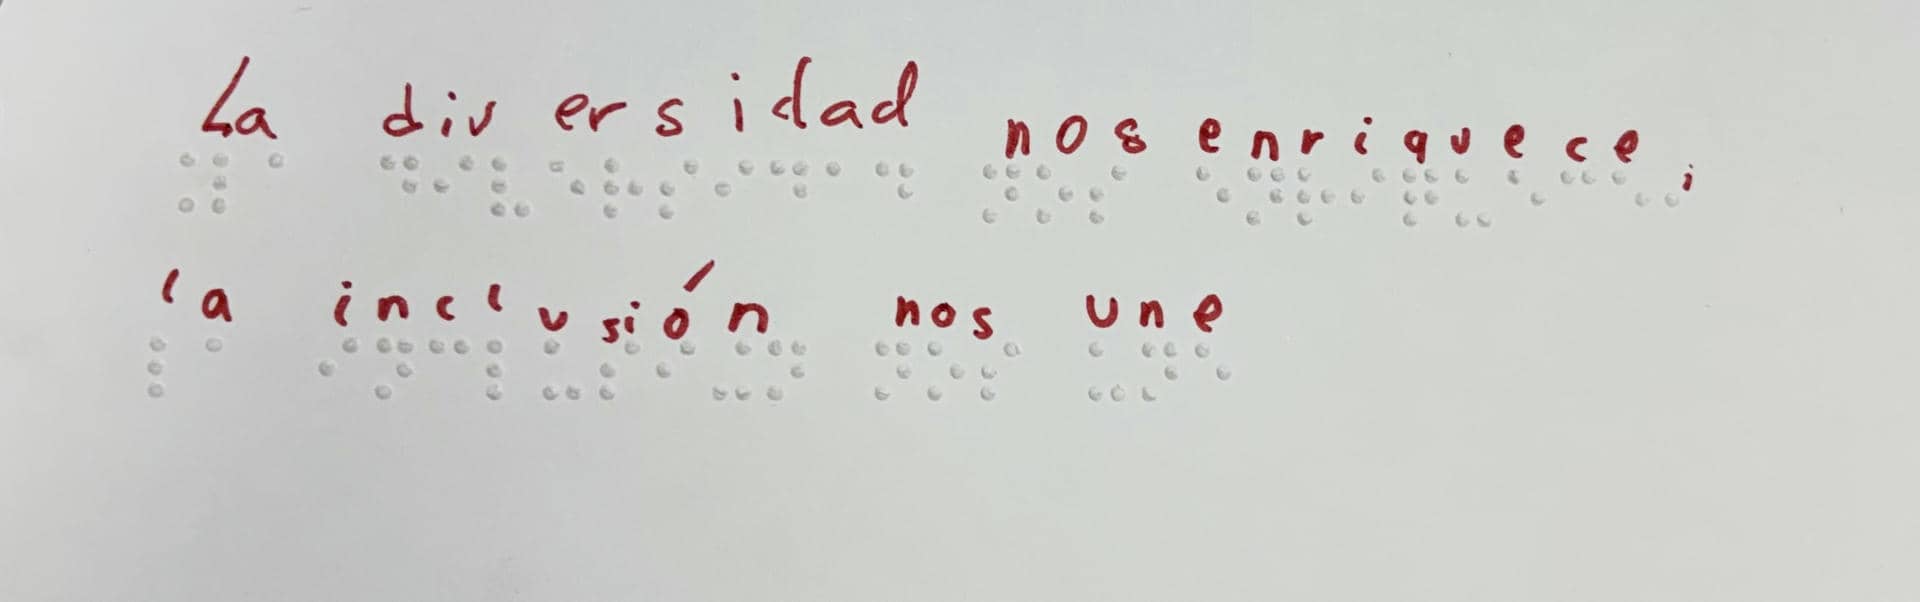 La diversidad nos enriquece;
la inclusión nos une